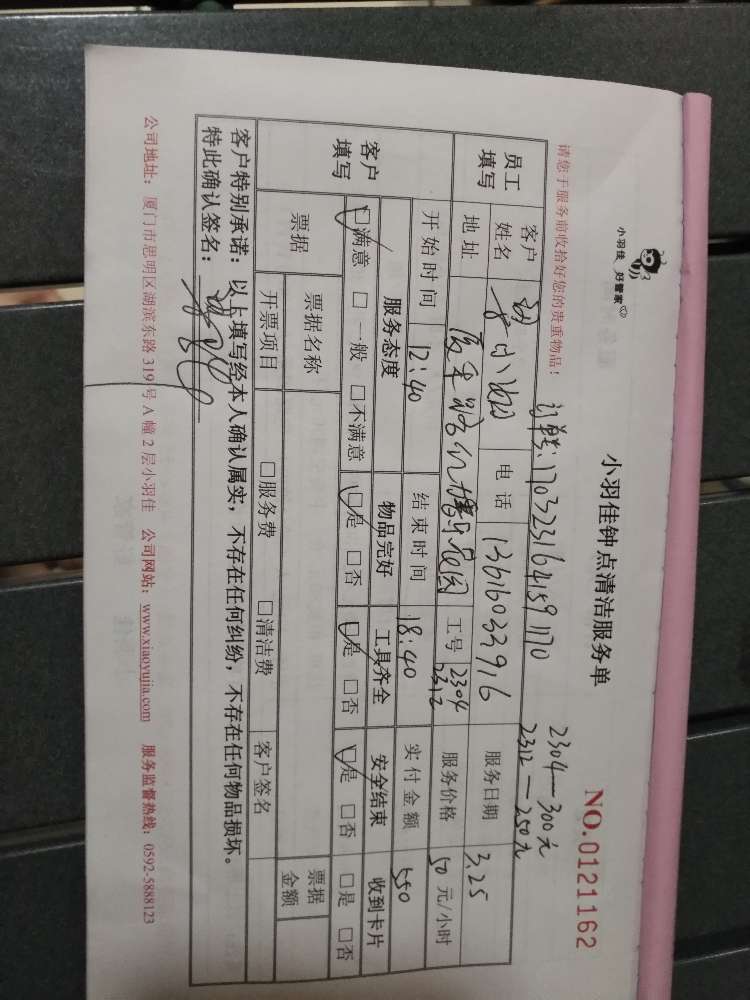 小羽佳 好管家
小羽佳钟点清洁服务单
NO.0121162
2304—300元
2312—250元
请您于服务前收拾好您的贵重物品！
员工填写
客户姓名 小姐 电话 13616033916 服务日期 3.25
地址 工号 2304 2312 服务价格 50元/小时
开始时间 12:40 结束时间 18:40 实付金额 550
客户填写
服务态度 物品完好 工具齐全 安全结束 收到卡片
□满意 □一般 □不满意 □是 □否 □是 □否 □是 □否 □是 □否
票据 票据名称 票据金额
开票项目 □服务费 □清洁费 客户签名
客户特别承诺：以上填写经本人确认属实，不存在任何纠纷，不存在任何物品损坏。
特此确认签名：
公司地址：厦门市思明区湖滨东路319号A幢2层小羽佳 公司网站：www.xiaoyujia.com 服务监督热线：0592-5888123